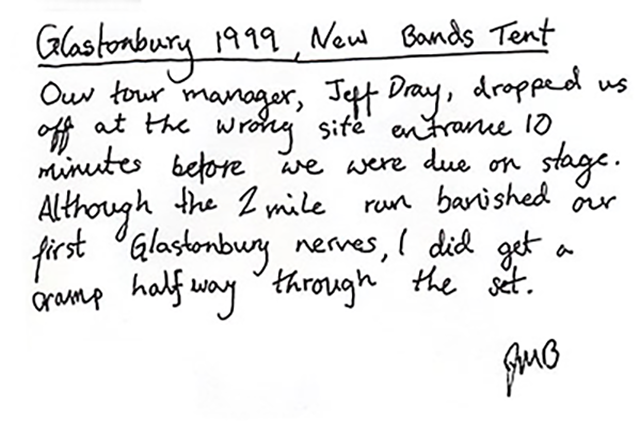 Glastonbury 1999, New Bands Tent
Our tour manager, Jeff Dray, dropped us
off at the wrong site entrance 10
minutes before we were due on stage.
Although the 2 mile run banished our
first Glastonbury nerves, I did get a
cramp half way through the set.
JMB